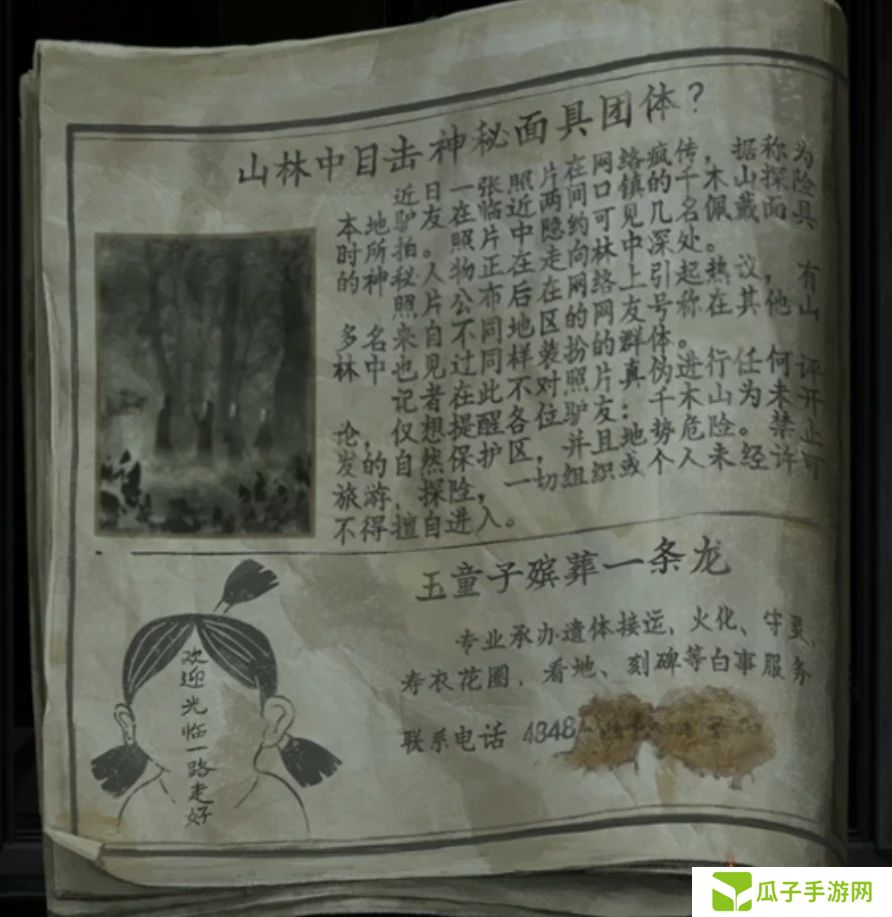 山林中目击神秘面具团体？
近日一张照片在网络疯传，据称为
本地驴友在临近两间口镇的千木山探险
时所拍。照片中隐约可见几名佩戴面具
的神秘人物正在走向林中深处。
照片公布后在网络上引起热议，有
多名来自不同地区的网友号称在其他山
林中也见过同样装扮的群体。
记者在此不对照片真伪进行任何评
论，仅想提醒各位驴友：千木山为未开
发的自然保护区，并且地势危险。禁止
旅游、探险，一切组织或个人未经许可
不得擅自进入。
玉童子殡葬一条龙
专业承办遗体接运、火化、守灵、
寿衣花圈、看地、刻碑等白事服务
联系电话 4848
欢迎光临一路走好
瓜子手游网